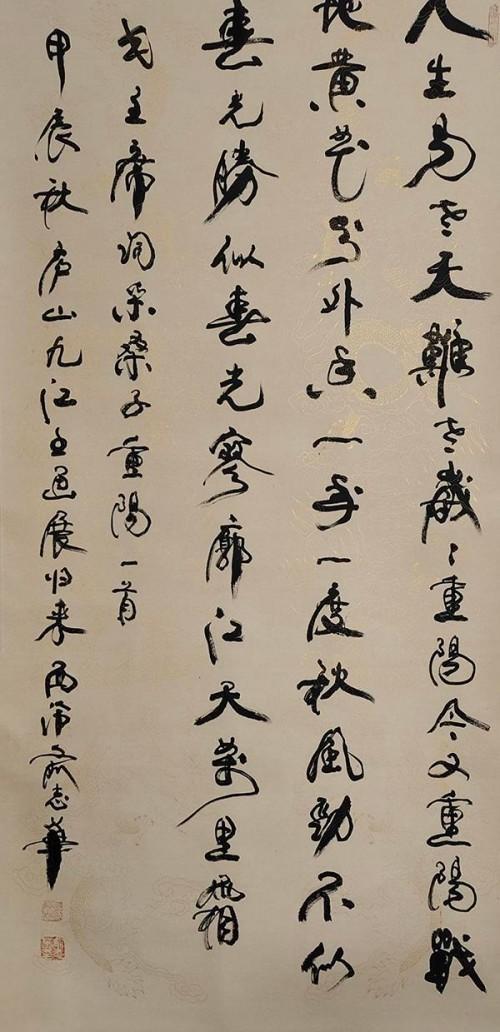 人生易老天難老歲〻重陽今又重陽戰
地黃花分外香一年一度秋風勁不似
春光勝似春光寥廓江天萬里霜
毛主席詞采桑子重陽一首
甲辰秋庐山九江展归来志華